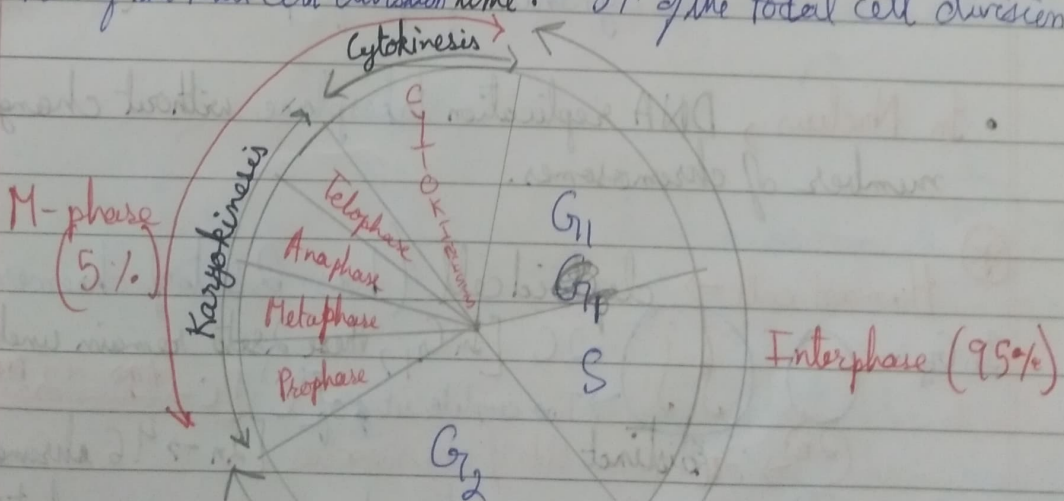 of the Total cell division
Cytokinesis
CYTOKINESIS
Karyokinesis
M-phase
(5%)
Telophase
Anaphase
Metaphase
Prophase
G1
S
G2
Interphase (95%)